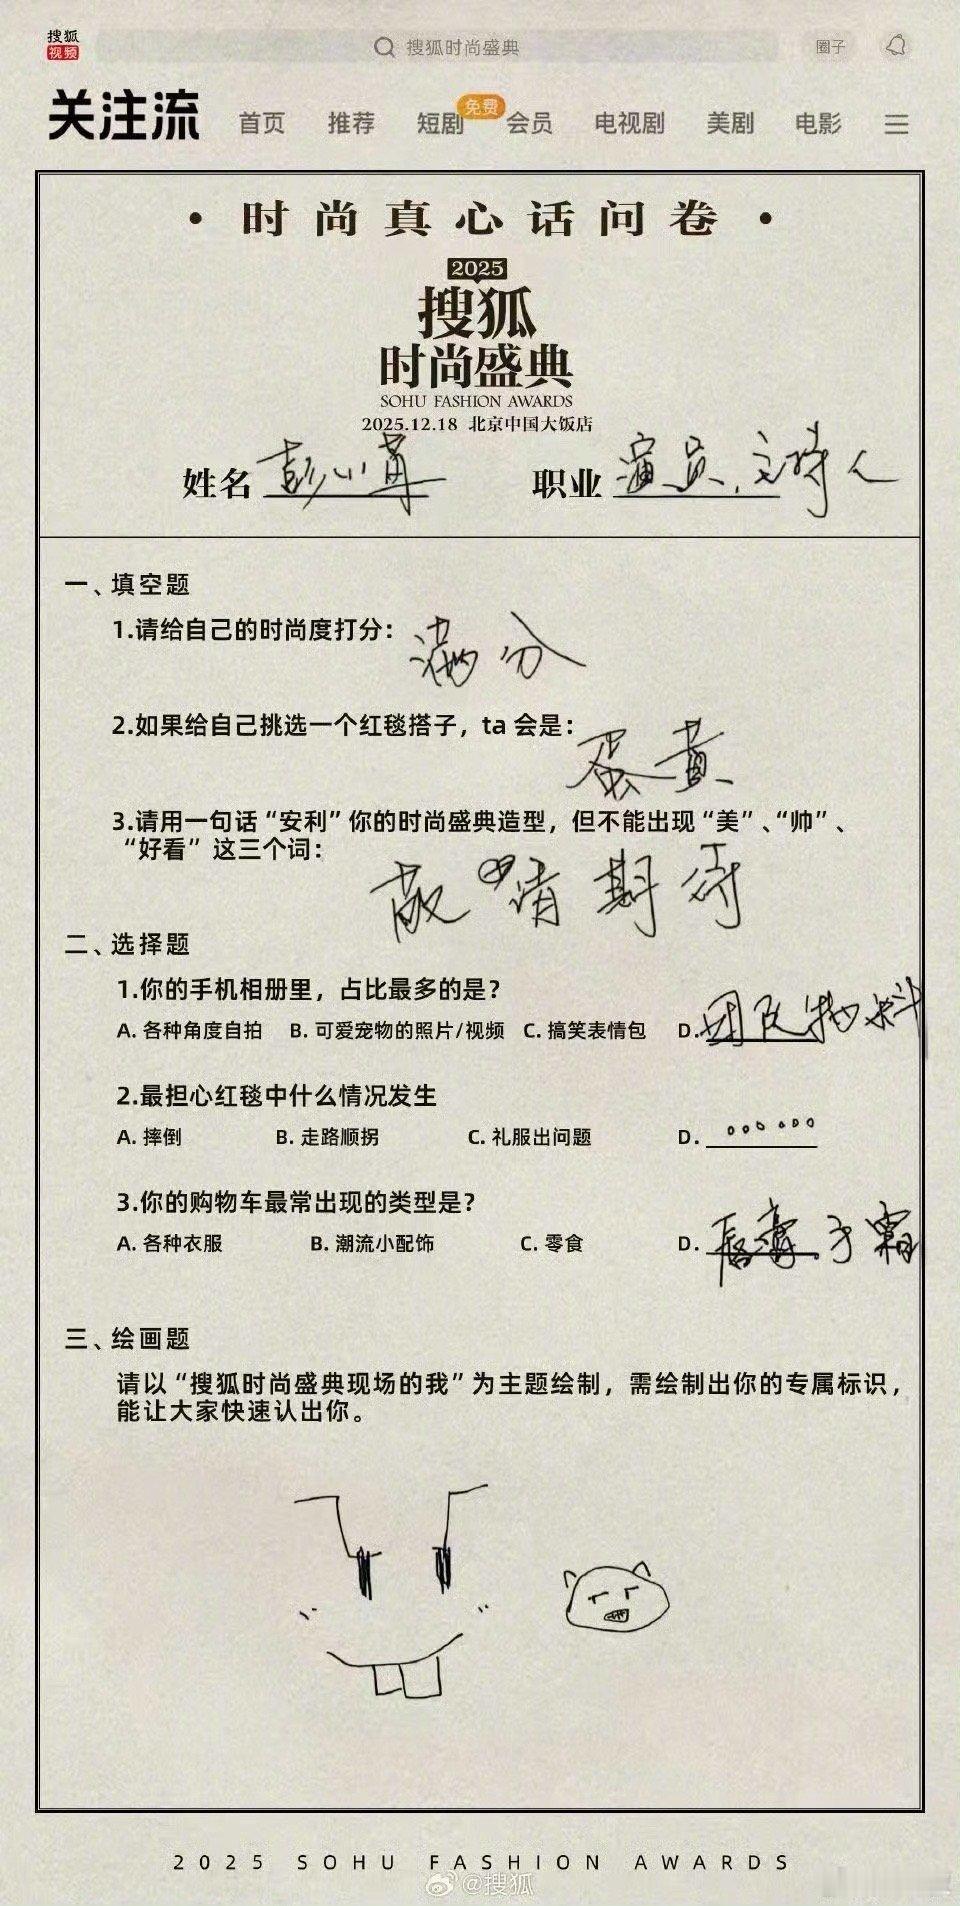 搜狐
视频
搜狐时尚盛典
圈子
关注流 首页 推荐 短剧 免费 会员 电视剧 美剧 电影
·时尚真心话问卷·
2025
搜狐
时尚盛典
SOHU FASHION AWARDS
2025.12.18 北京中国大饭店
姓名 彭小苒 职业 演员、主持人
一、填空题
1.请给自己的时尚度打分：满分
2.如果给自己挑选一个红毯搭子，ta 会是：蛋黄
3.请用一句话“安利”你的时尚盛典造型，但不能出现“美”、“帅”、
“好看” 这三个词：
敬请期待
二、选择题
1.你的手机相册里，占比最多的是？
A. 各种角度自拍 B. 可爱宠物的照片/视频 C. 搞笑表情包 D. 团队物料
2.最担心红毯中什么情况发生
A. 摔倒 B. 走路顺拐 C. 礼服出问题 D. 。。。。。。
3.你的购物车最常出现的类型是？
A. 各种衣服 B. 潮流小配饰 C. 零食 D. 唇膏、手霜
三、绘画题
请以“搜狐时尚盛典现场的我”为主题绘制，需绘制出你的专属标识，
能让大家快速认出你。
2025 SOHU FASHION AWARDS
@搜狐